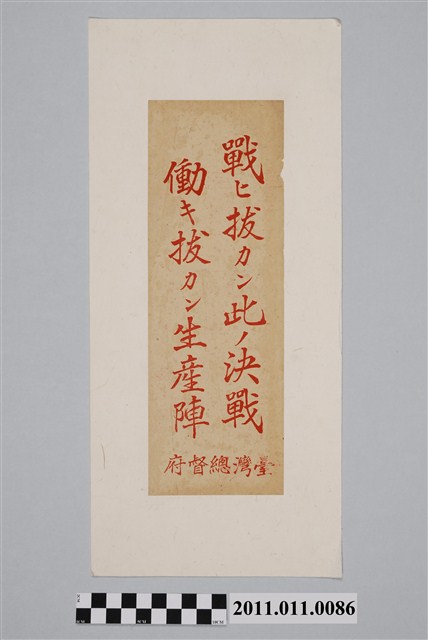 戰ヒ拔カン此ノ決戰
働キ拔カン生産陣
臺灣總督府
2011.011.0086